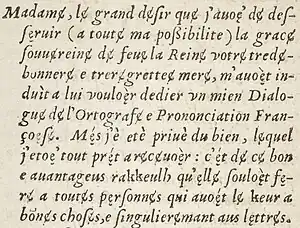 Madamę, lę grand desir quę j'auoę́ dę desſ-
ſęruir (a toutę ma poſſibilite) la gracę
ſouuęreinę dę feuę la Reinę votrę tredę-
bonnerę e treręgrettęę merę, m'auoę̀t in-
duìt a lui vouloę̀r dedier vn mien Dialo-
guę dę l'Ortografę e Prononciation Fran-
çoęſę. Mę́s j'è etè priuè du bien, lęquel
j'etoę́ tout prę́t aręcęuoę̀r: c'ę́t dę cę bon
e auantageus rakkeulh qu'ellę ſouloę̀t fę-
rę a toutęs perſonnęs qui auoę̀t lę keur a
bõnęs choſęs, e ſingulieręmant aus lęttręs.